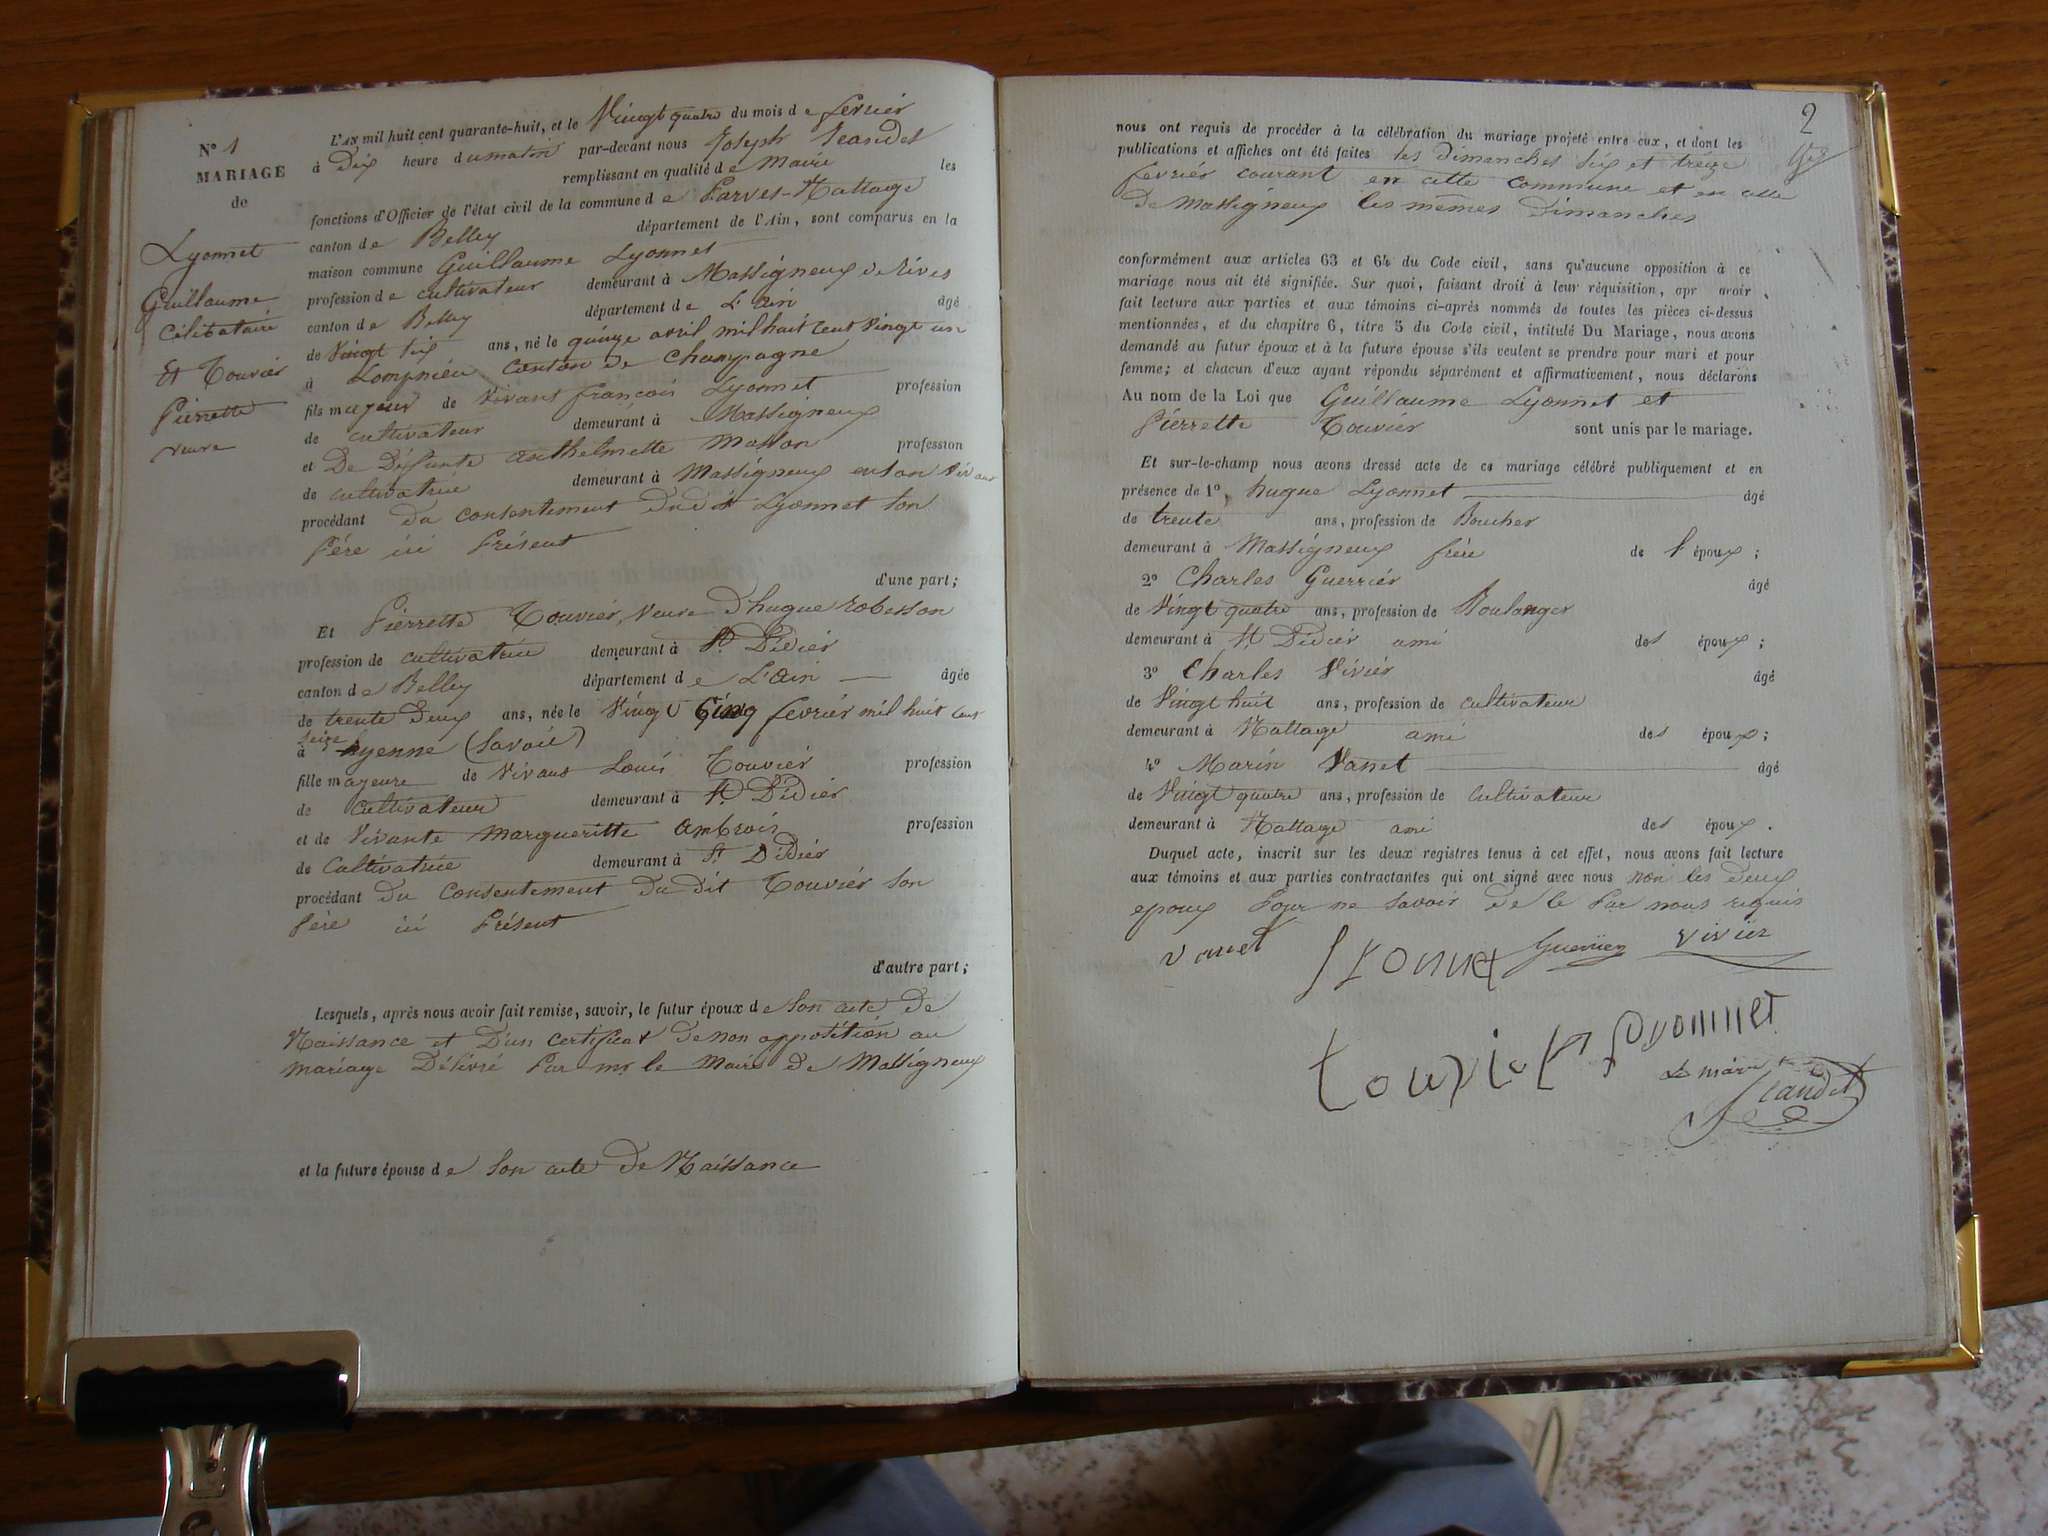 N° 1
MARIAGE
de
Lyonnet
Guillaume
Célibataire
Et Touvier
Pierrette
veuve
L'AN mil huit cent quarante-huit, et le Vingt quatre du mois de fevrier
à Dix heure du matin par-devant nous Joseph Jeandet
remplissant en qualité de Maire les
fonctions d'Officier de l'état civil de la commune de Parves-Nattage
canton de Belley département de l'Ain, sont comparus en la
maison commune Guillaume Lyonnet
profession de cultivateur demeurant à Massigneux de rives
canton de Belley département de L'ain âgé
de Vingt six ans, né le quinze avril mil huit cent Vingt un
à Lompnieu canton de Champagne
fils majeur de Vivant françois Lyonnet profession
de cultivateur demeurant à Massigneux
et De Défunte anthelmette Masson profession
de cultivatrice demeurant à Massigneux en son Vivant
procédant du consentement Du dit Lyonnet son
Pére ici Présent
d'une part;
Et Pierrette Touvier, Veuve d'hugue robesson
profession de cultivatrice demeurant à St Didier
canton de Belley département de L'ain âgée
de trente Deux ans, née le Vingt Cinq fevrier mil huit cent
seize
à yenne (Savoie)
fille majeure de Vivant Louis Touvier profession
de cultivateur demeurant à St Didier
et de Vivante margueritte ambrois profession
de Cultivatrice demeurant à St Didier
procédant du consentement Du dit Touvier son
Pére ici Présent
d'autre part;
Lesquels, après nous avoir fait remise, savoir, le futur époux de son acte De
Naissance et D'un certificat De non oppositión au
mariage Délivré Par mr le Maire de Massigneux
et la future épouse de son acte De Naissance
2
nous ont requis de procéder à la célébration du mariage projeté entre eux, et dont les
publications et affiches ont été faites les dimanches six et treize
fevriér courant en cette commune et en celle
De Massigneux les mêmes Dimanches
conformément aux articles 63 et 64 du Code civil, sans qu'aucune opposition à ce
mariage nous ait été signifiée. Sur quoi, faisant droit à leur réquisition, apr avoir
fait lecture aux parties et aux témoins ci-après nommés de toutes les pièces ci-dessus
mentionnées, et du chapitre 6, titre 5 du Code civil, intitulé Du Mariage, nous avons
demandé au futur époux et à la future épouse s'ils veulent se prendre pour mari et pour
femme; et chacun d'eux ayant répondu séparément et affirmativement, nous déclarons
Au nom de la Loi que Guillaume Lyonnet et
Piérrette Touviér sont unis par le mariage.
Et sur-le-champ nous avons dressé acte de ce mariage célébré publiquement et en
présence de 1°, hugue Lyonnet âgé
de trente ans, profession de Boucher
demeurant à Massigneux frére de l'époux;
2° Charles Guerriér âgé
de Vingt quatre ans, profession de Boulanger
demeurant à St Didier ami des époux;
3° Charles Viviér âgé
de Vingt huit ans, profession de cultivateur
demeurant à Nattage ami des époux;
4° Marin Vanet âgé
de Vingt quatre ans, profession de cultivateur
demeurant à Nattage ami des époux.
Duquel acte, inscrit sur les deux registres tenus à cet effet, nous avons fait lecture
aux témoins et aux parties contractantes qui ont signé avec nous non les deux
epoux Pour ne savoir de ce Par nous requis
vanet Lyonnet Guerrier vivier
touviet Lyonnet
Le maire
Jeandet